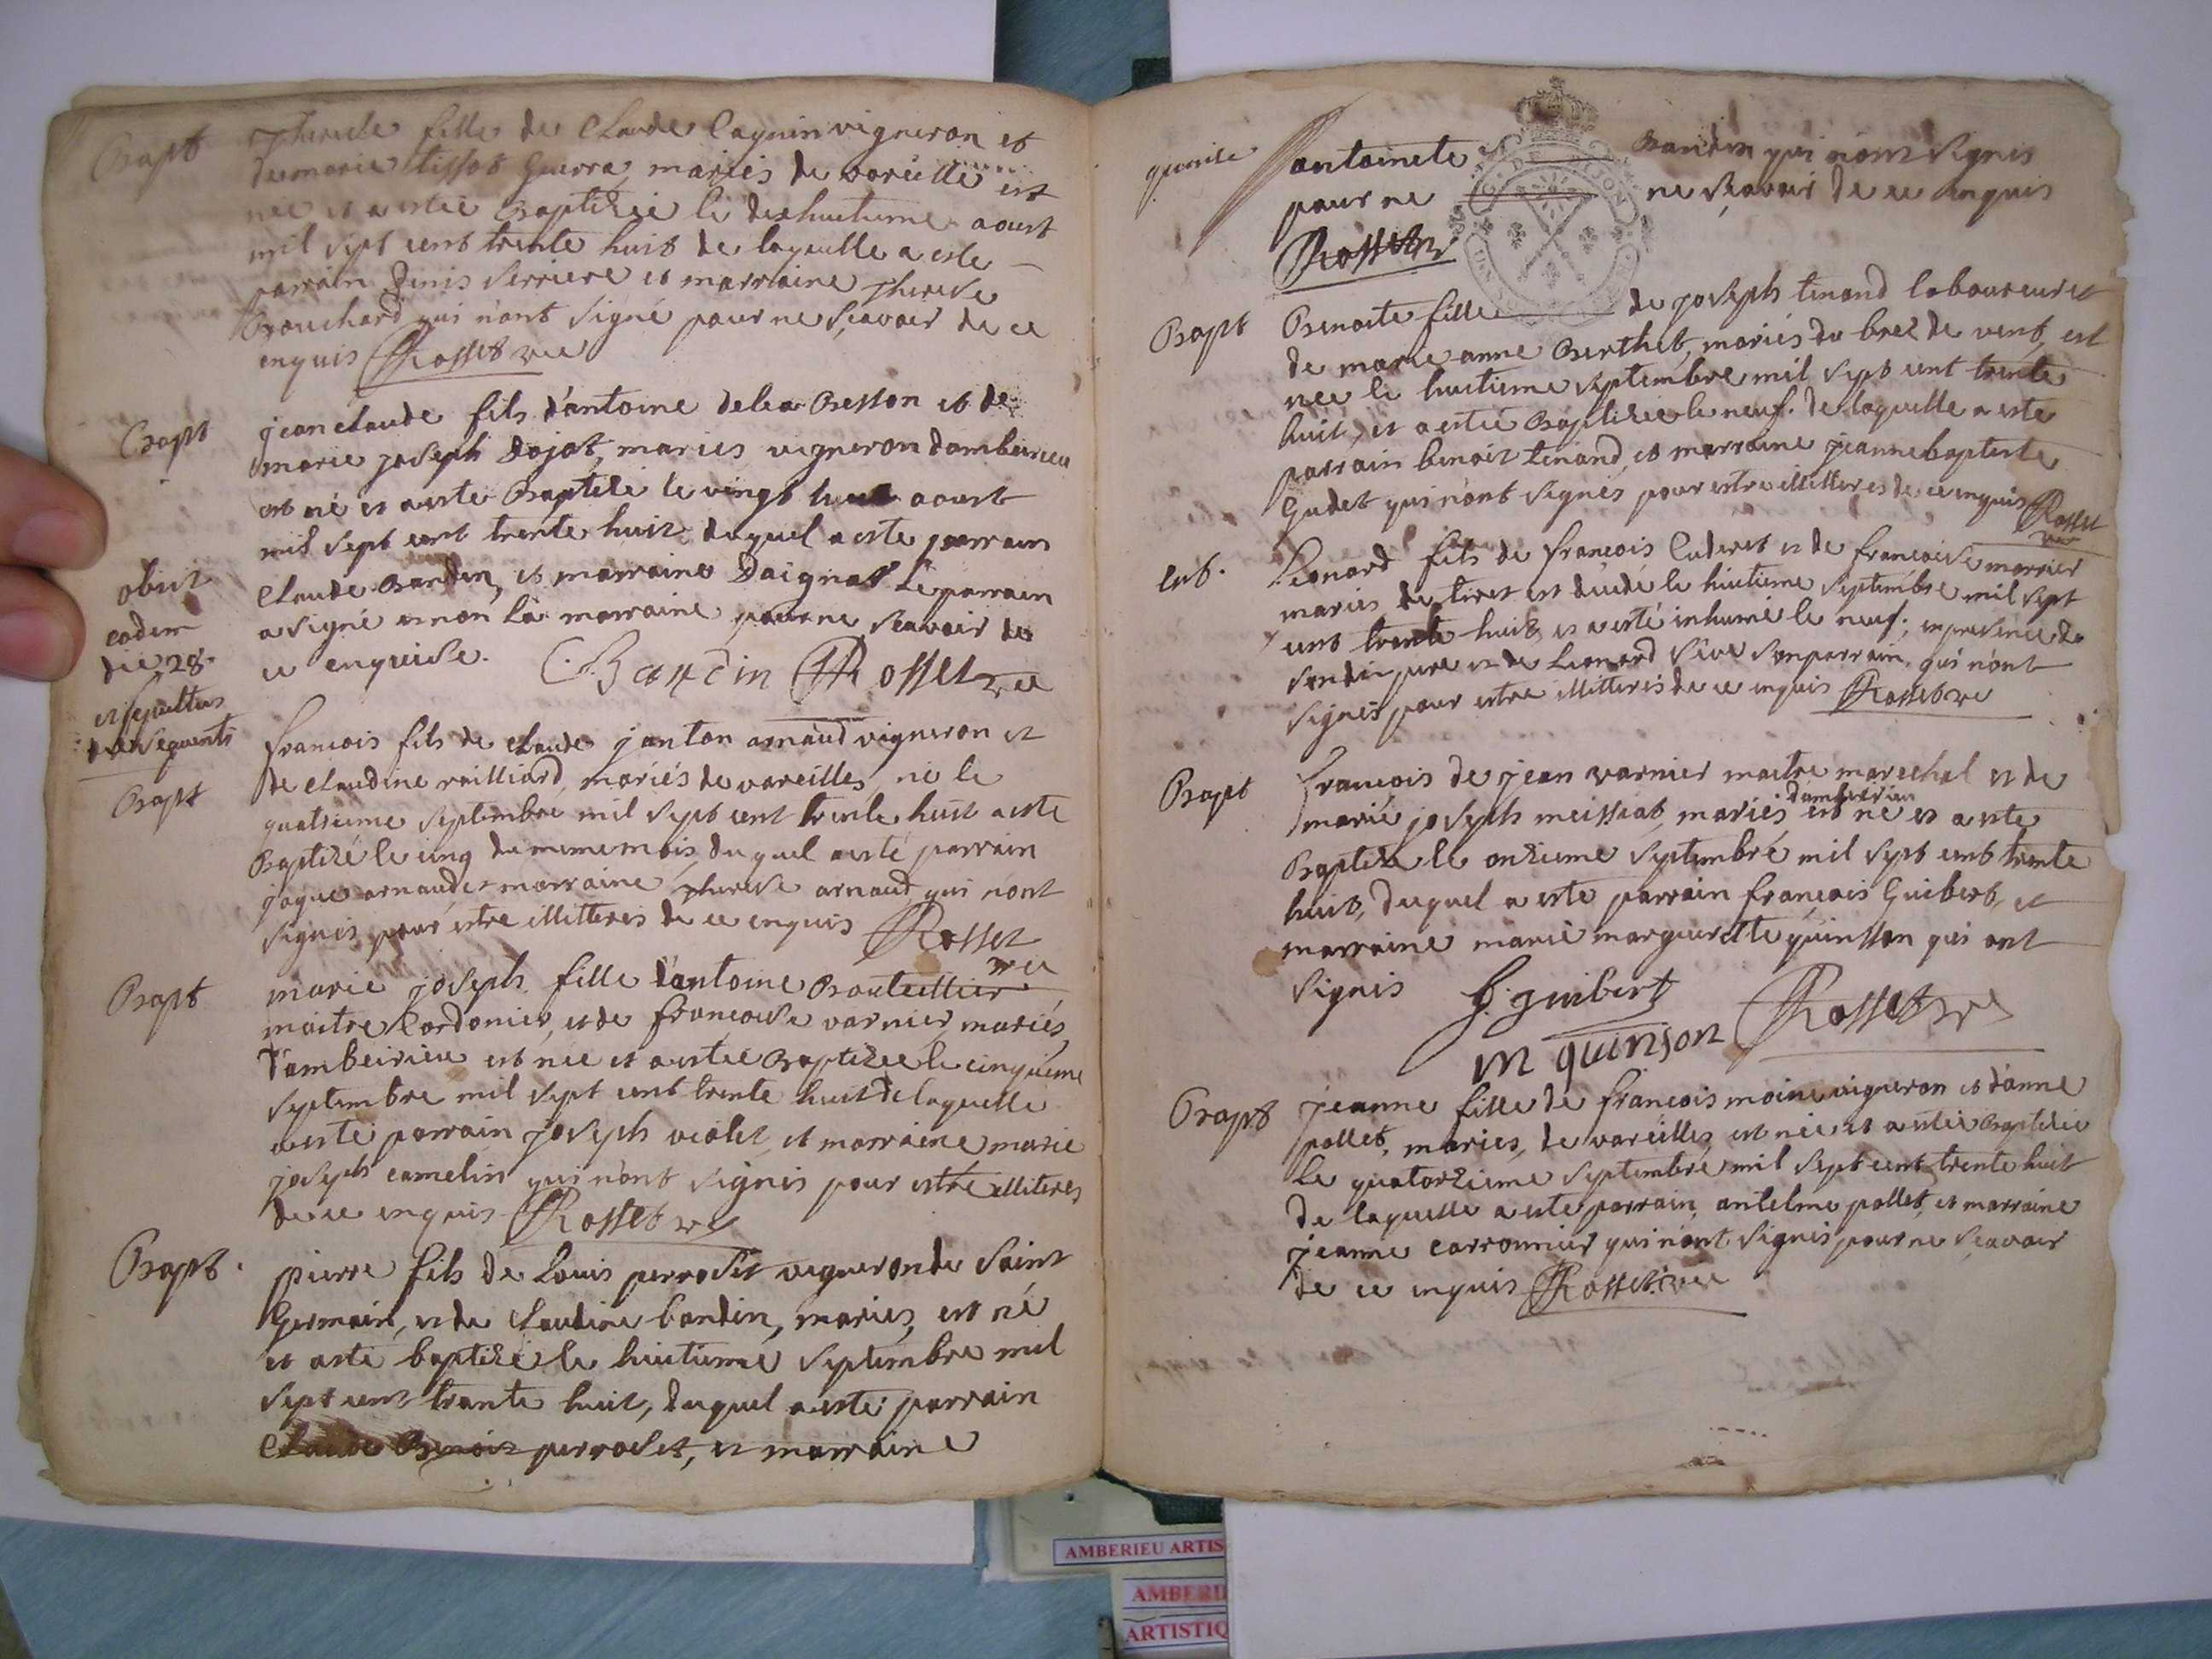 Bapt
Therese fille de Claude Cagnin vigneron et
de marie tissot Guerra, mariés de vareille est
née et a estée Baptizée le dixhuitieme aoust
mil sept cent trente huit de laquelle a este
parrain Denis Serriere et marraine Therese
Bouchard qui n'ont signé pour ne sçavoir de ce
enquis Rosset vic
Bapt
jean claude fils d'antoine dela Besson et de
marie joseph Dojat, mariés vigneron dambeirieu
est né et a este Baptizé le vingt huit aoust
mil sept cent trente huit duquel a esté parrain
Claude Bandin, et marraine Daignat le parrain
a signé et non la marraine pour ne scavoir de
ce enquise. C. Bandin Rosset vic
obiit
eadem
die 28.
et sepultus
die sequenti
Bapt
francois fils de claude janton arnaud vigneron et
de claudine railliard, mariés de vareilles, né le
quatrieme septembre mil sept cent trente huit a este
Baptizé le cinq du meme mois, duquel a esté parrain
jaque arnaud et marraine Therese arnaud qui n'ont
signés pour estre illitteres de ce enquis Rosset
vic
Bapt
marie joseph fille d'antoine Bouteillier
maitre Cordonier, et de francoise varnier, mariés,
d'ambeirieu est née et a estée Baptizée le cinquieme
septembre mil sept cent trente huit de laquelle
a esté parrain joseph violet, et marraine marie
joseph camelin qui n'ont signés pour estre illiteres
de ce enquis Rosset vic
Bapt.
pierre fils de Louis perroset vigneron de saint
Germain, et de claudine bandin, mariés, est né
et a esté baptizé le huitieme septembre mil
sept cent trante huit, duquel a esté parrain
Claude Benoit perroset, et marraine
antoinete Bandin qui n'ont signés
pour ne ne sçavoir de ce enquis
Rosset vic
Bapt
Benoite fille de joseph tenand laboureur et
de marie anne Berthet, mariés du brez de vent, est
née le huitieme septembre mil sept cent trente
huit, et a estée Baptizée le neuf. de laquelle a este
parrain benoit tenand, et marraine jeanne baptiste
Gudet qui n'ont signés pour estre illitteres de ce enquis Rosset
vic
Leonard fils de francois Cuderet et de francoise marrier
mariés de tiret est decedé le huitieme septembre mil sept
cent trente huit, et a esté inhumé le neuf; en presence de
sondit pere et de Leonard Sive son parrain, qui n'ont
signés pour estre illitterés de ce enquis Rosset vic
Bapt
francois de jean varnier maitre marechal et de
marie joseph meissiat, mariés dambeirieu est né et a este
Baptizé le onzieme septembre mil sept cent trente
huit, duquel a este parrain françois Guibert, et
marraine marie marguerette quinsson qui ont
signés f. guibert
m quinson Rosset vic
Bapt
jeanne fille de francois moine vigneron et danne
pollet, mariés, de vareilles, est née et a estée Baptizée
Le quatorzieme septembre mil sept cent trente huit
de laquelle a este parrain, antelme pollet, et marraine
jeanne carronnier qui n'ont signés pour ne sçavoir
de ce enquis Rosset vic
AMBERIEU ARTIS
AMBERI
ARTISTIQ